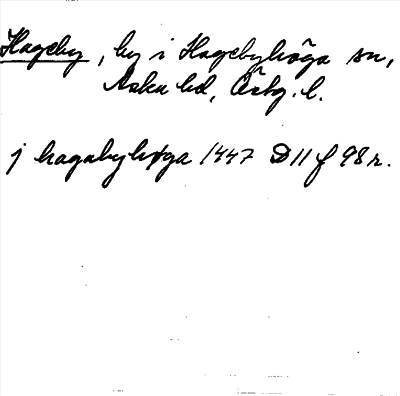 Hageby, by i Hagebyhöga sn,
Aska hd, Östg. l.
j hagabyhøga 1447 D 11 f 98 r.